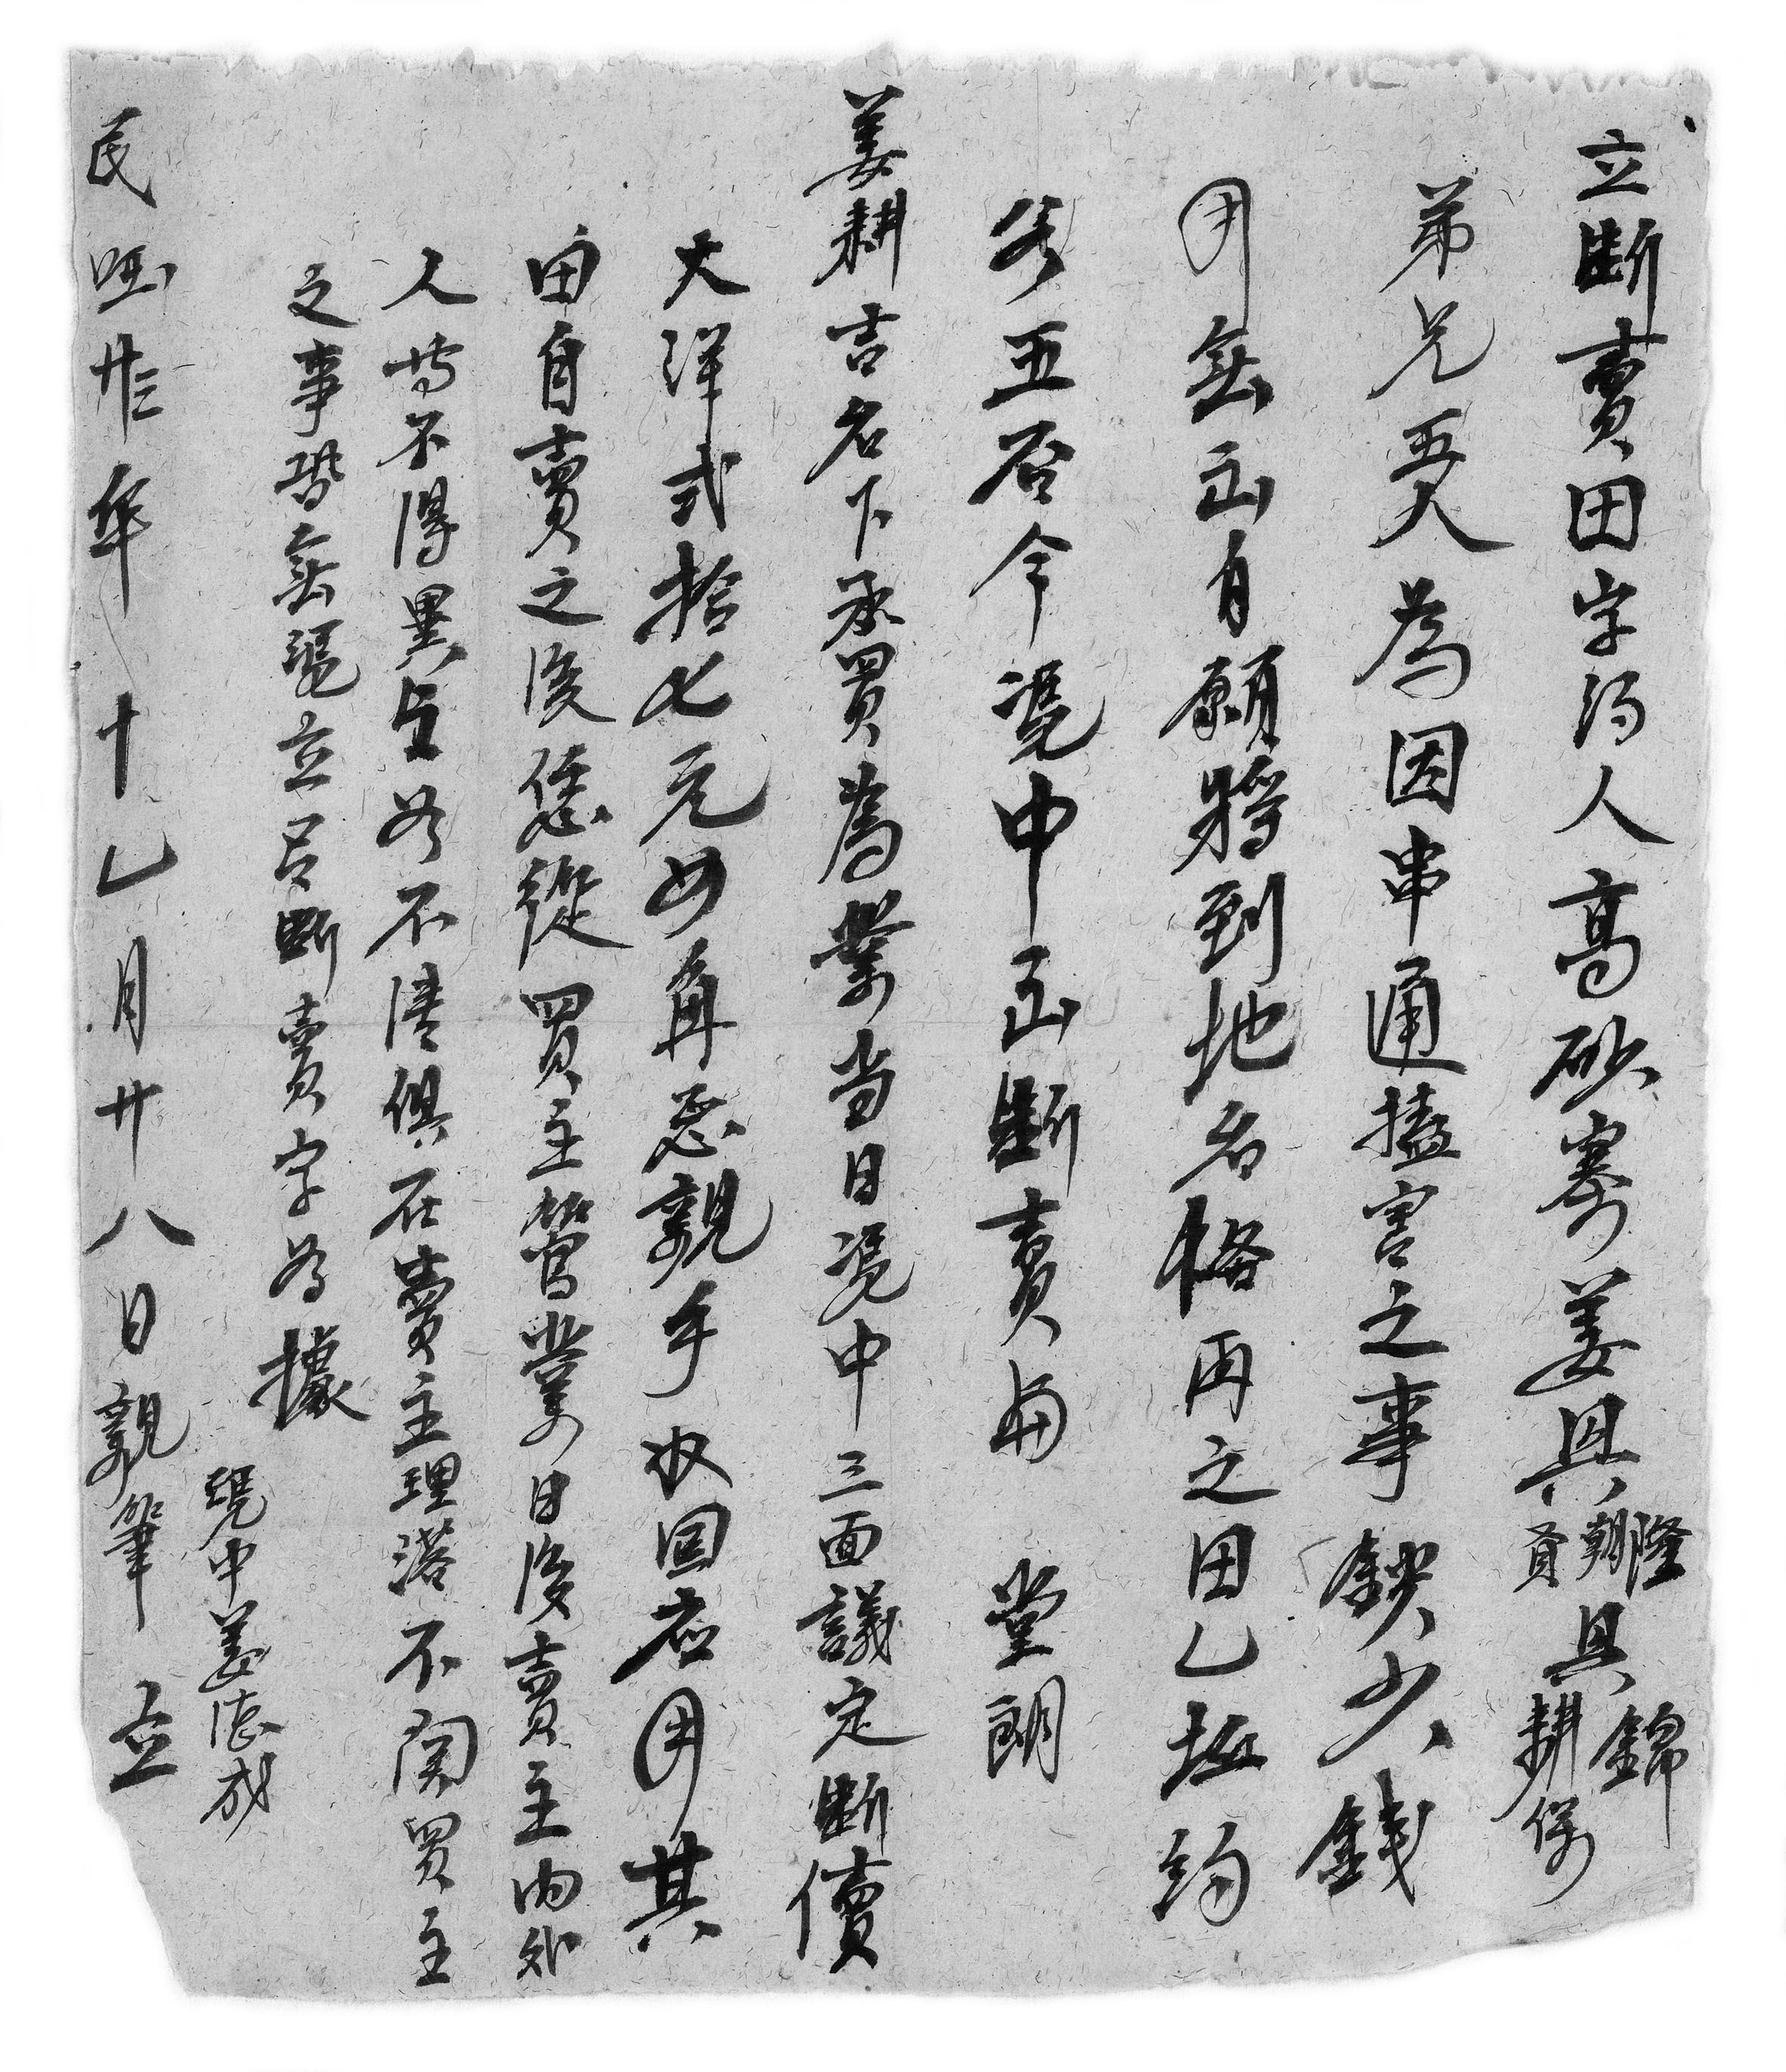 立断賣田字約人高砂寨姜具隆朝貢具錦耕保
弟兄五人為因串通搕害之事缺少錢
用無出自願將到地名格両之田乙坵約
谷五石今憑中出断賣與堂朗
姜耕吉名下承買為業當日憑中三面議定断價
大洋弍拾七元四角正親手收回應用其
田自賣之後恁從買主管業日後賣主内外
人等不得異言如不清俱在賣主理落不関買主
之事恐無憑立此断賣字為據
憑中姜德成
民國廿三年十乙月廿八日親筆立